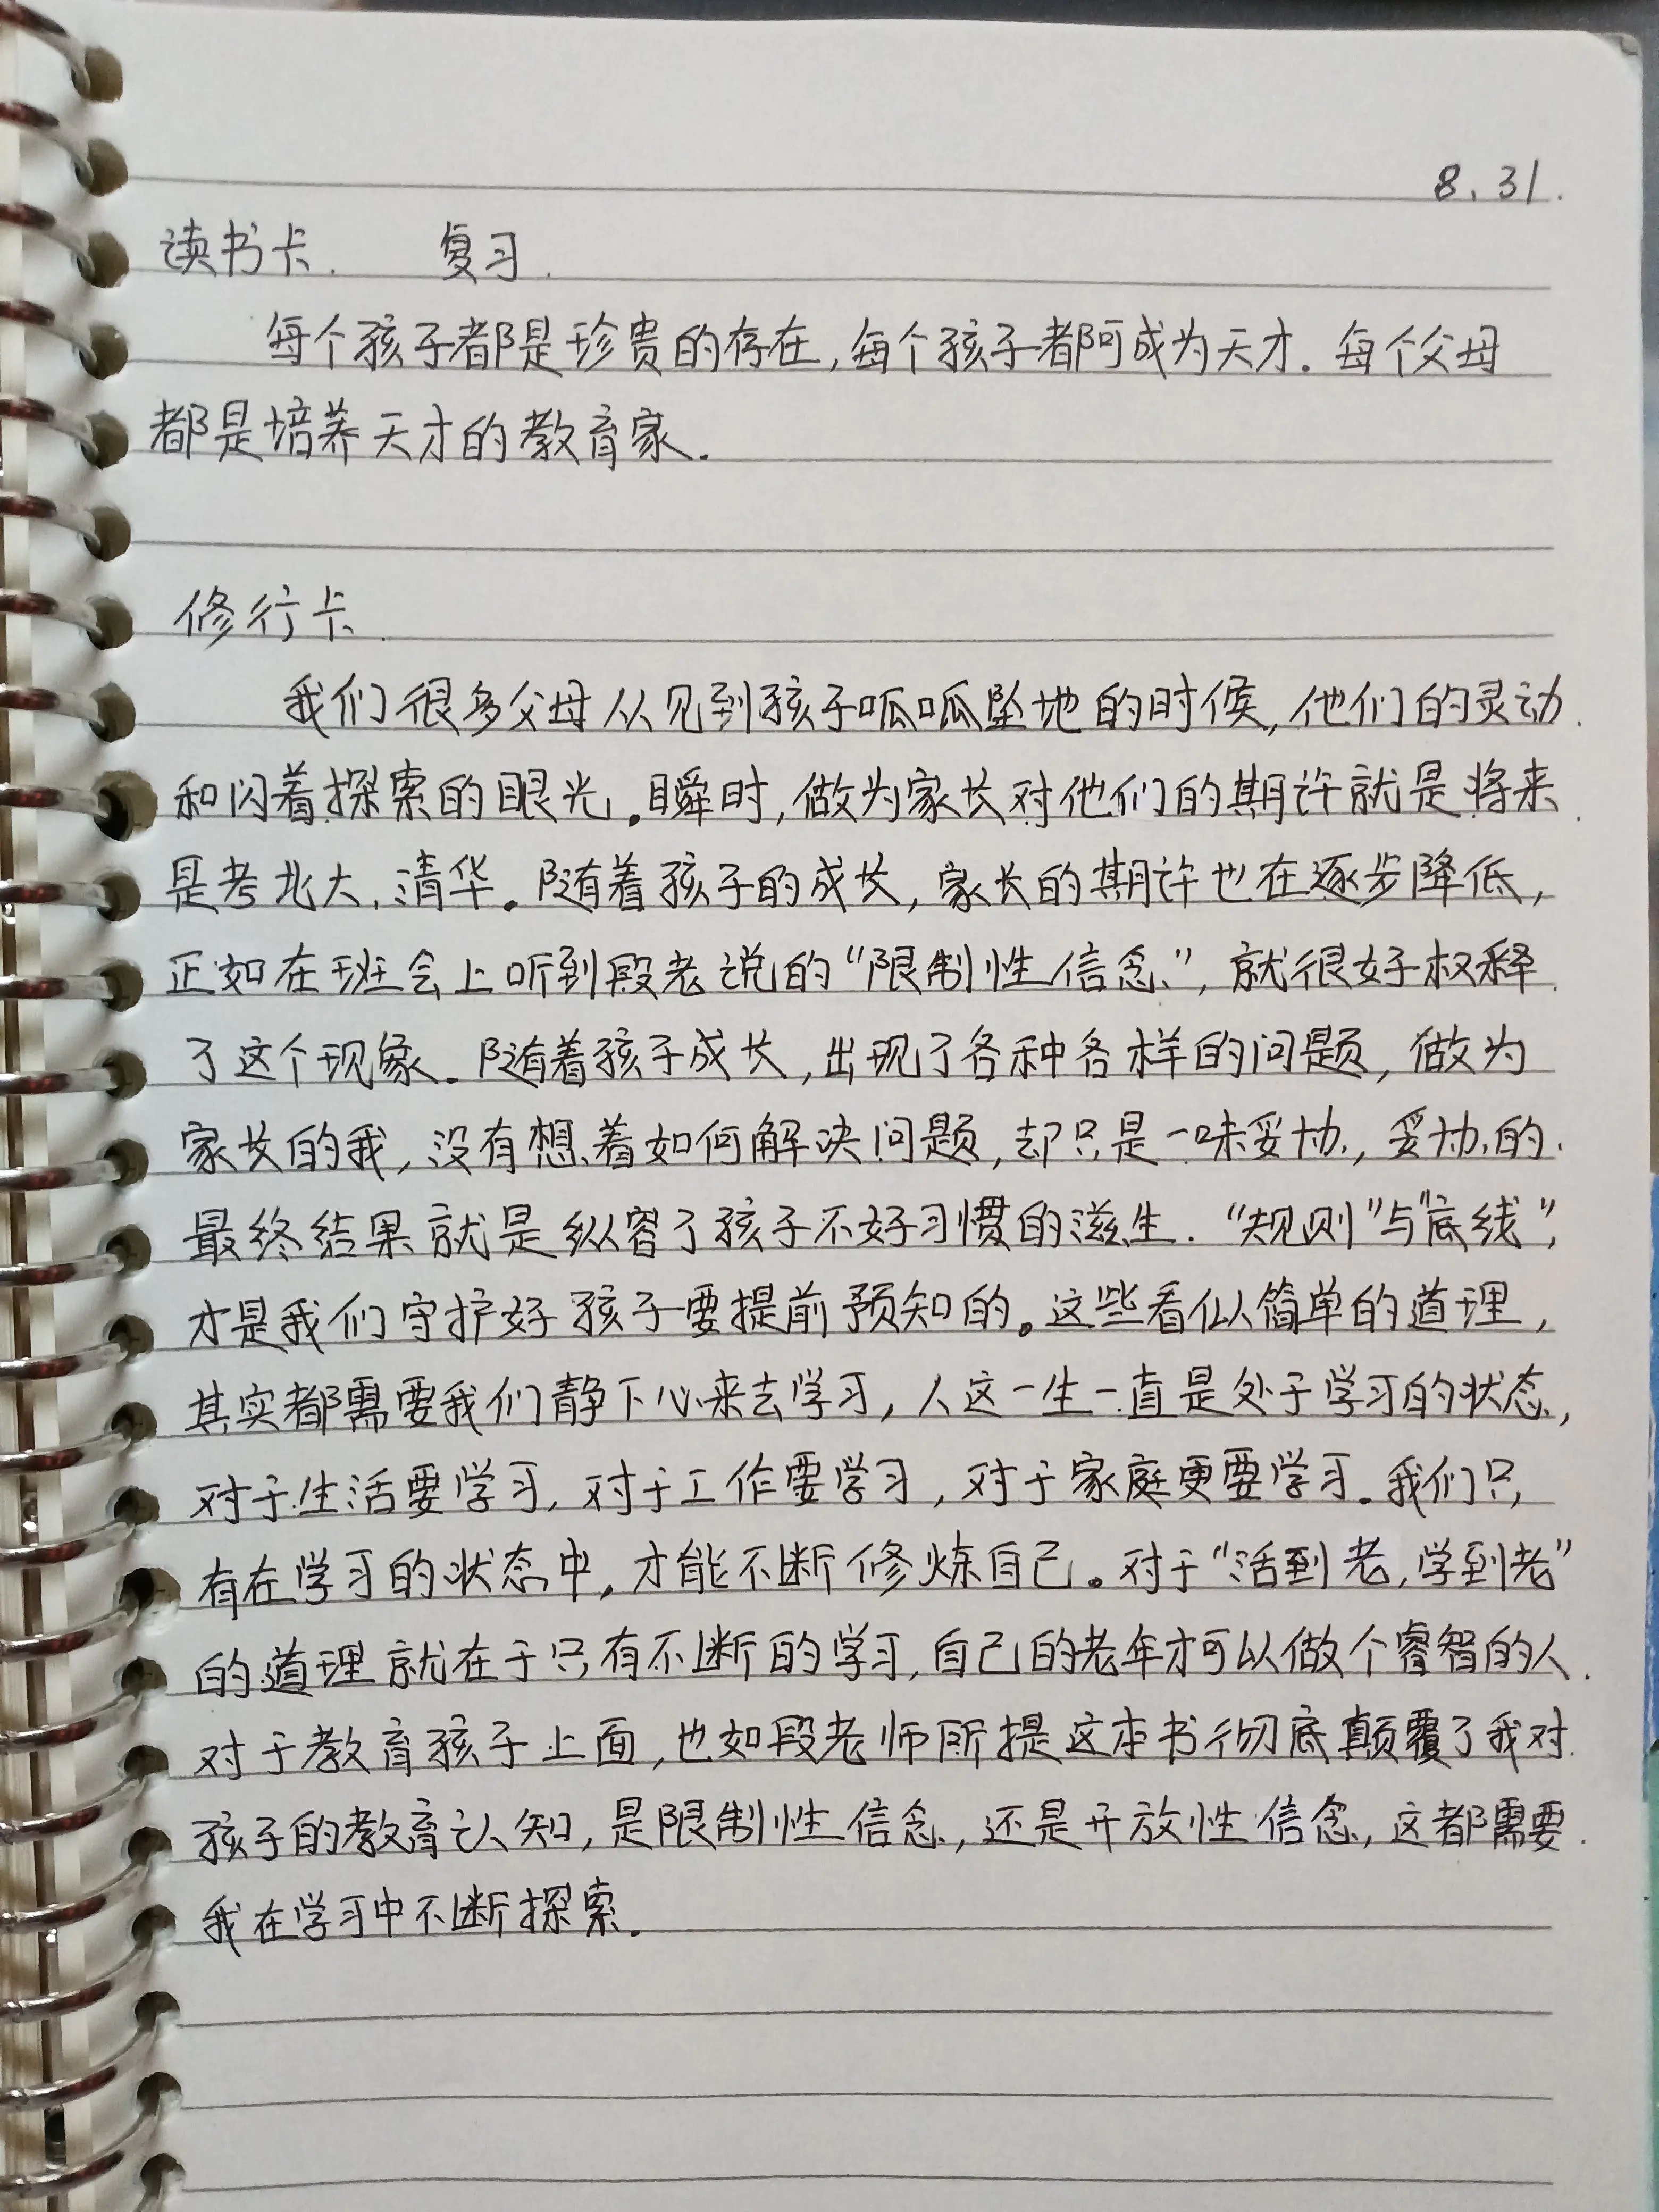 8.31.
读书卡. 复习.
每个孩子都是珍贵的存在,每个孩子都可成为天才.每个父母
都是培养天才的教育家.
修行卡.
我们很多父母从见到孩子呱呱坠地的时候,他们的灵动
和闪着探索的眼光。瞬时,做为家长对他们的期许就是将来
是考北大,清华。随着孩子的成长,家长的期许也在逐步降低,
正如在班会上听到段老说的“限制性信念”,就很好权释
了这个现象。随着孩子成长,出现了各种各样的问题,做为
家长的我,没有想着如何解决问题,却只是一味妥协,妥协的
最终结果就是纵容了孩子不好习惯的滋生.“规则”与“底线”,
才是我们守护好孩子要提前预知的。这些看似简单的道理,
其实都需要我们静下心来去学习,人这一生一直是处于学习的状态,
对于生活要学习,对于工作要学习,对于家庭更要学习。我们只
有在学习的状态中,才能不断修炼自己。对于“活到老,学到老”
的道理就在于只有不断的学习,自己的老年才可以做个睿智的人.
对于教育孩子上面,也如段老师所提这本书彻底颠覆了我对
孩子的教育认知,是限制性信念,还是开放性信念,这都需要
我在学习中不断探索。